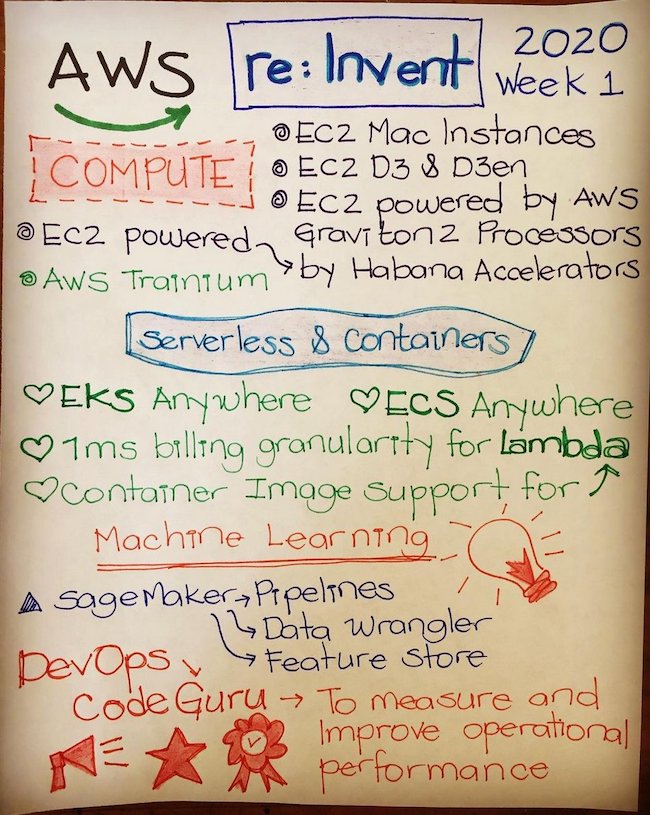 AWS re:Invent 2020
Week 1
COMPUTE
EC2 Mac Instances
EC2 D3 & D3en
EC2 powered by AWS
Graviton2 Processors
EC2 powered → by Habana Accelerators
AWS Trainium
Serverless & Containers
♡ EKS Anywhere ♡ ECS Anywhere
♡ 1ms billing granularity for Lambda
♡ Container Image support for ↑
Machine Learning
SageMaker → Pipelines
→ Data Wrangler
→ Feature Store
DevOps
CodeGuru → To measure and
Improve operational
performance